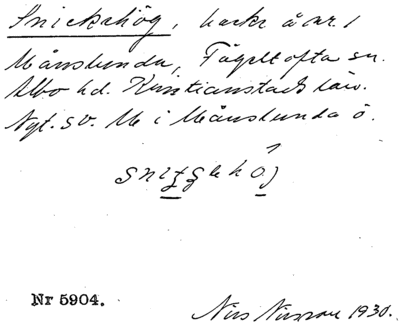 Snickshög, backe å nr 1
Månslunda, Fågeltofta sn.
Albo hd. Kristianstads län.
Nyt. SV. M i Månslunda ö.
Nr 5904.
Nils Nilsson 1930.